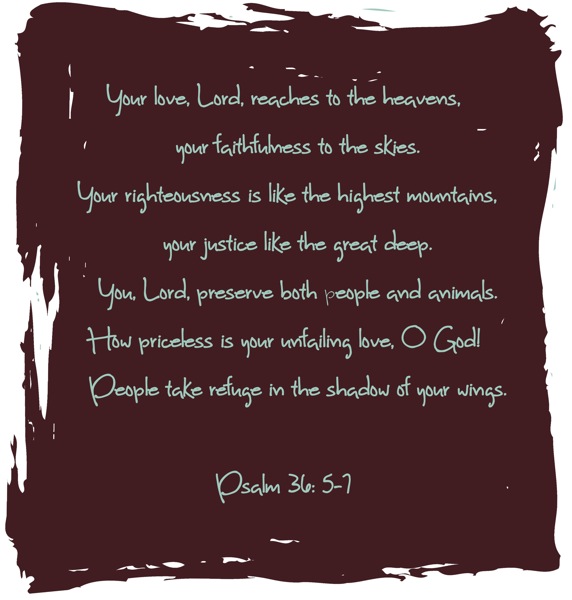 Your love, Lord, reaches to the heavens,
your faithfulness to the skies.
Your righteousness is like the highest mountains,
your justice like the great deep.
You, Lord, preserve both people and animals.
How priceless is your unfailing love, O God!
People take refuge in the shadow of your wings.
Psalm 36: 5-7